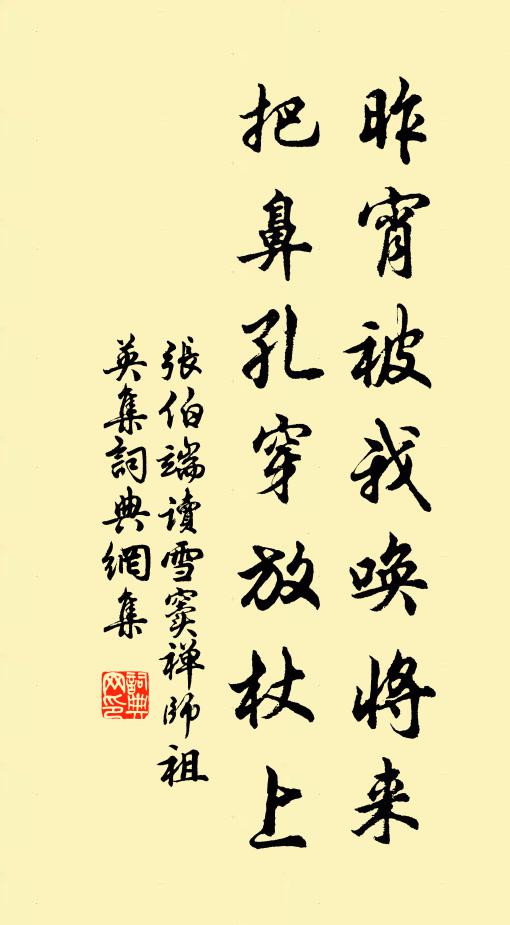 昨宵被我唤将来
把鼻孔穿放杖上
張伯端读雪窦禅師祖
英集詞典網集
詞典网印